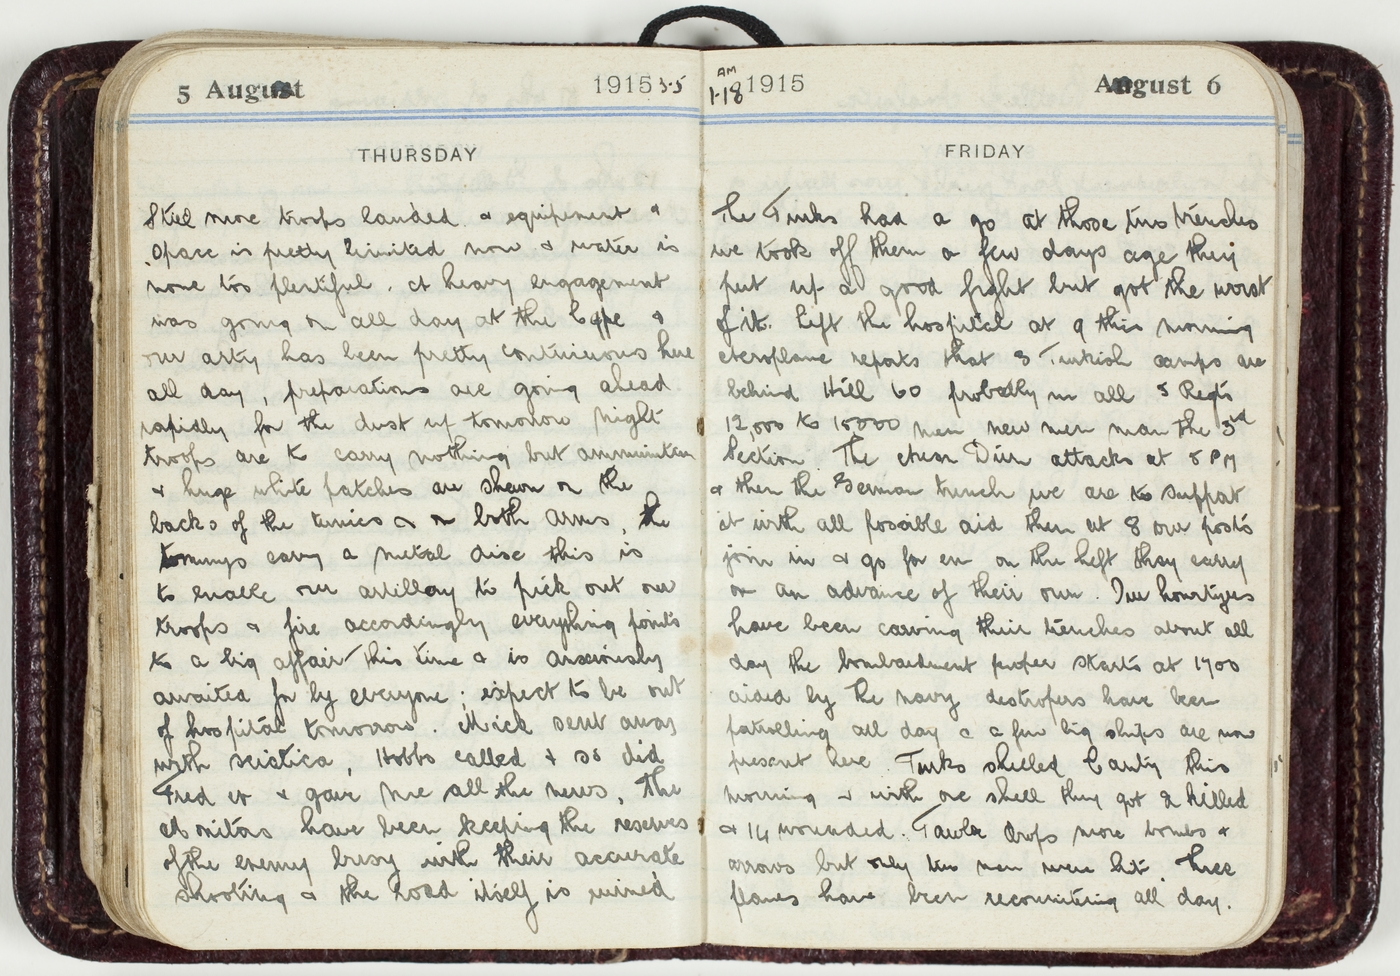 5 August 1915 3.5
THURSDAY
Still more troops landed. & equipement &
space is pretty limited now & water is
none too plentiful. A heavy engagement
was going on all day at the Cape &
our arty has been pretty continuous here
all day, preparations are going ahead
rapidly for the dust up tomorrow night
troops are to carry nothing but ammunition
& huge white patches are shewn on the
backs of the tunics & on both arms, the
tommys carry a metal disc this is
to enable our artillery to pick out our
troops & fire accordingly everything points
to a big affair this time & is anxiously
awaited for by everyone; expect to be out
of hospital tomorrow. Mick sent away
with sciatica, Hobbs called & so did
Fred & gave me all the news, The
Monitors have been keeping the reserves
of the enemy busy with their accurate
shooting & the road itself is ruined
AM
1-18 1915 August 6
FRIDAY
The Turks had a go at those two trenches
we took off them a few days age they
put up a good fight but got the worst
of it. Left the hospital at 9 this morning
Aeroplane reports that 3 Turkish camps are
behind Hill 60 probably in all 5 Regts
12,000 to 15000 men new men man the 3rd
Section. The Divn attacks at 5 PM
& then the German trench we are to support
it with all possible aid then at 8 our posts
join in & go for em on the left they carry
on an advance of their own. Our howitzers
have been carving their trenches about all
day the bombardment proper starts at 1700
aided by the navy destroyers have been
patrolling all day & a few big ships are now
present here. Turks shelled Canty this
morning & with one shell they got 2 killed
& 14 wounded. Taube drops more bombs &
arrows but only two men were hit. Three
planes have been reconnitering all day.